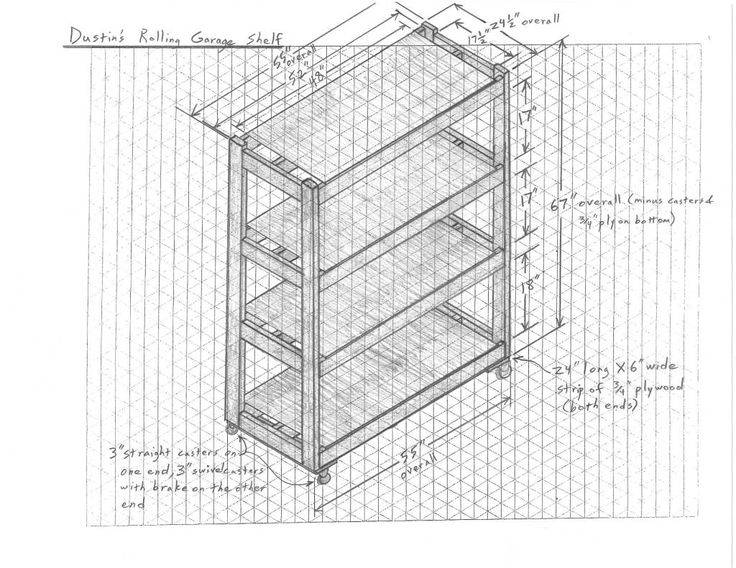 Dustin's Rolling Garage Shelf
55" overall
52"
48"
24½" overall
17½"
17"
17"
18"
67" overall (minus casters &
¾" ply on bottom)
24" long X 6" wide
strip of ¾" plywood
(both ends)
3" straight casters on
one end, 3" swivel casters
with brake on the other
end
55"
overall